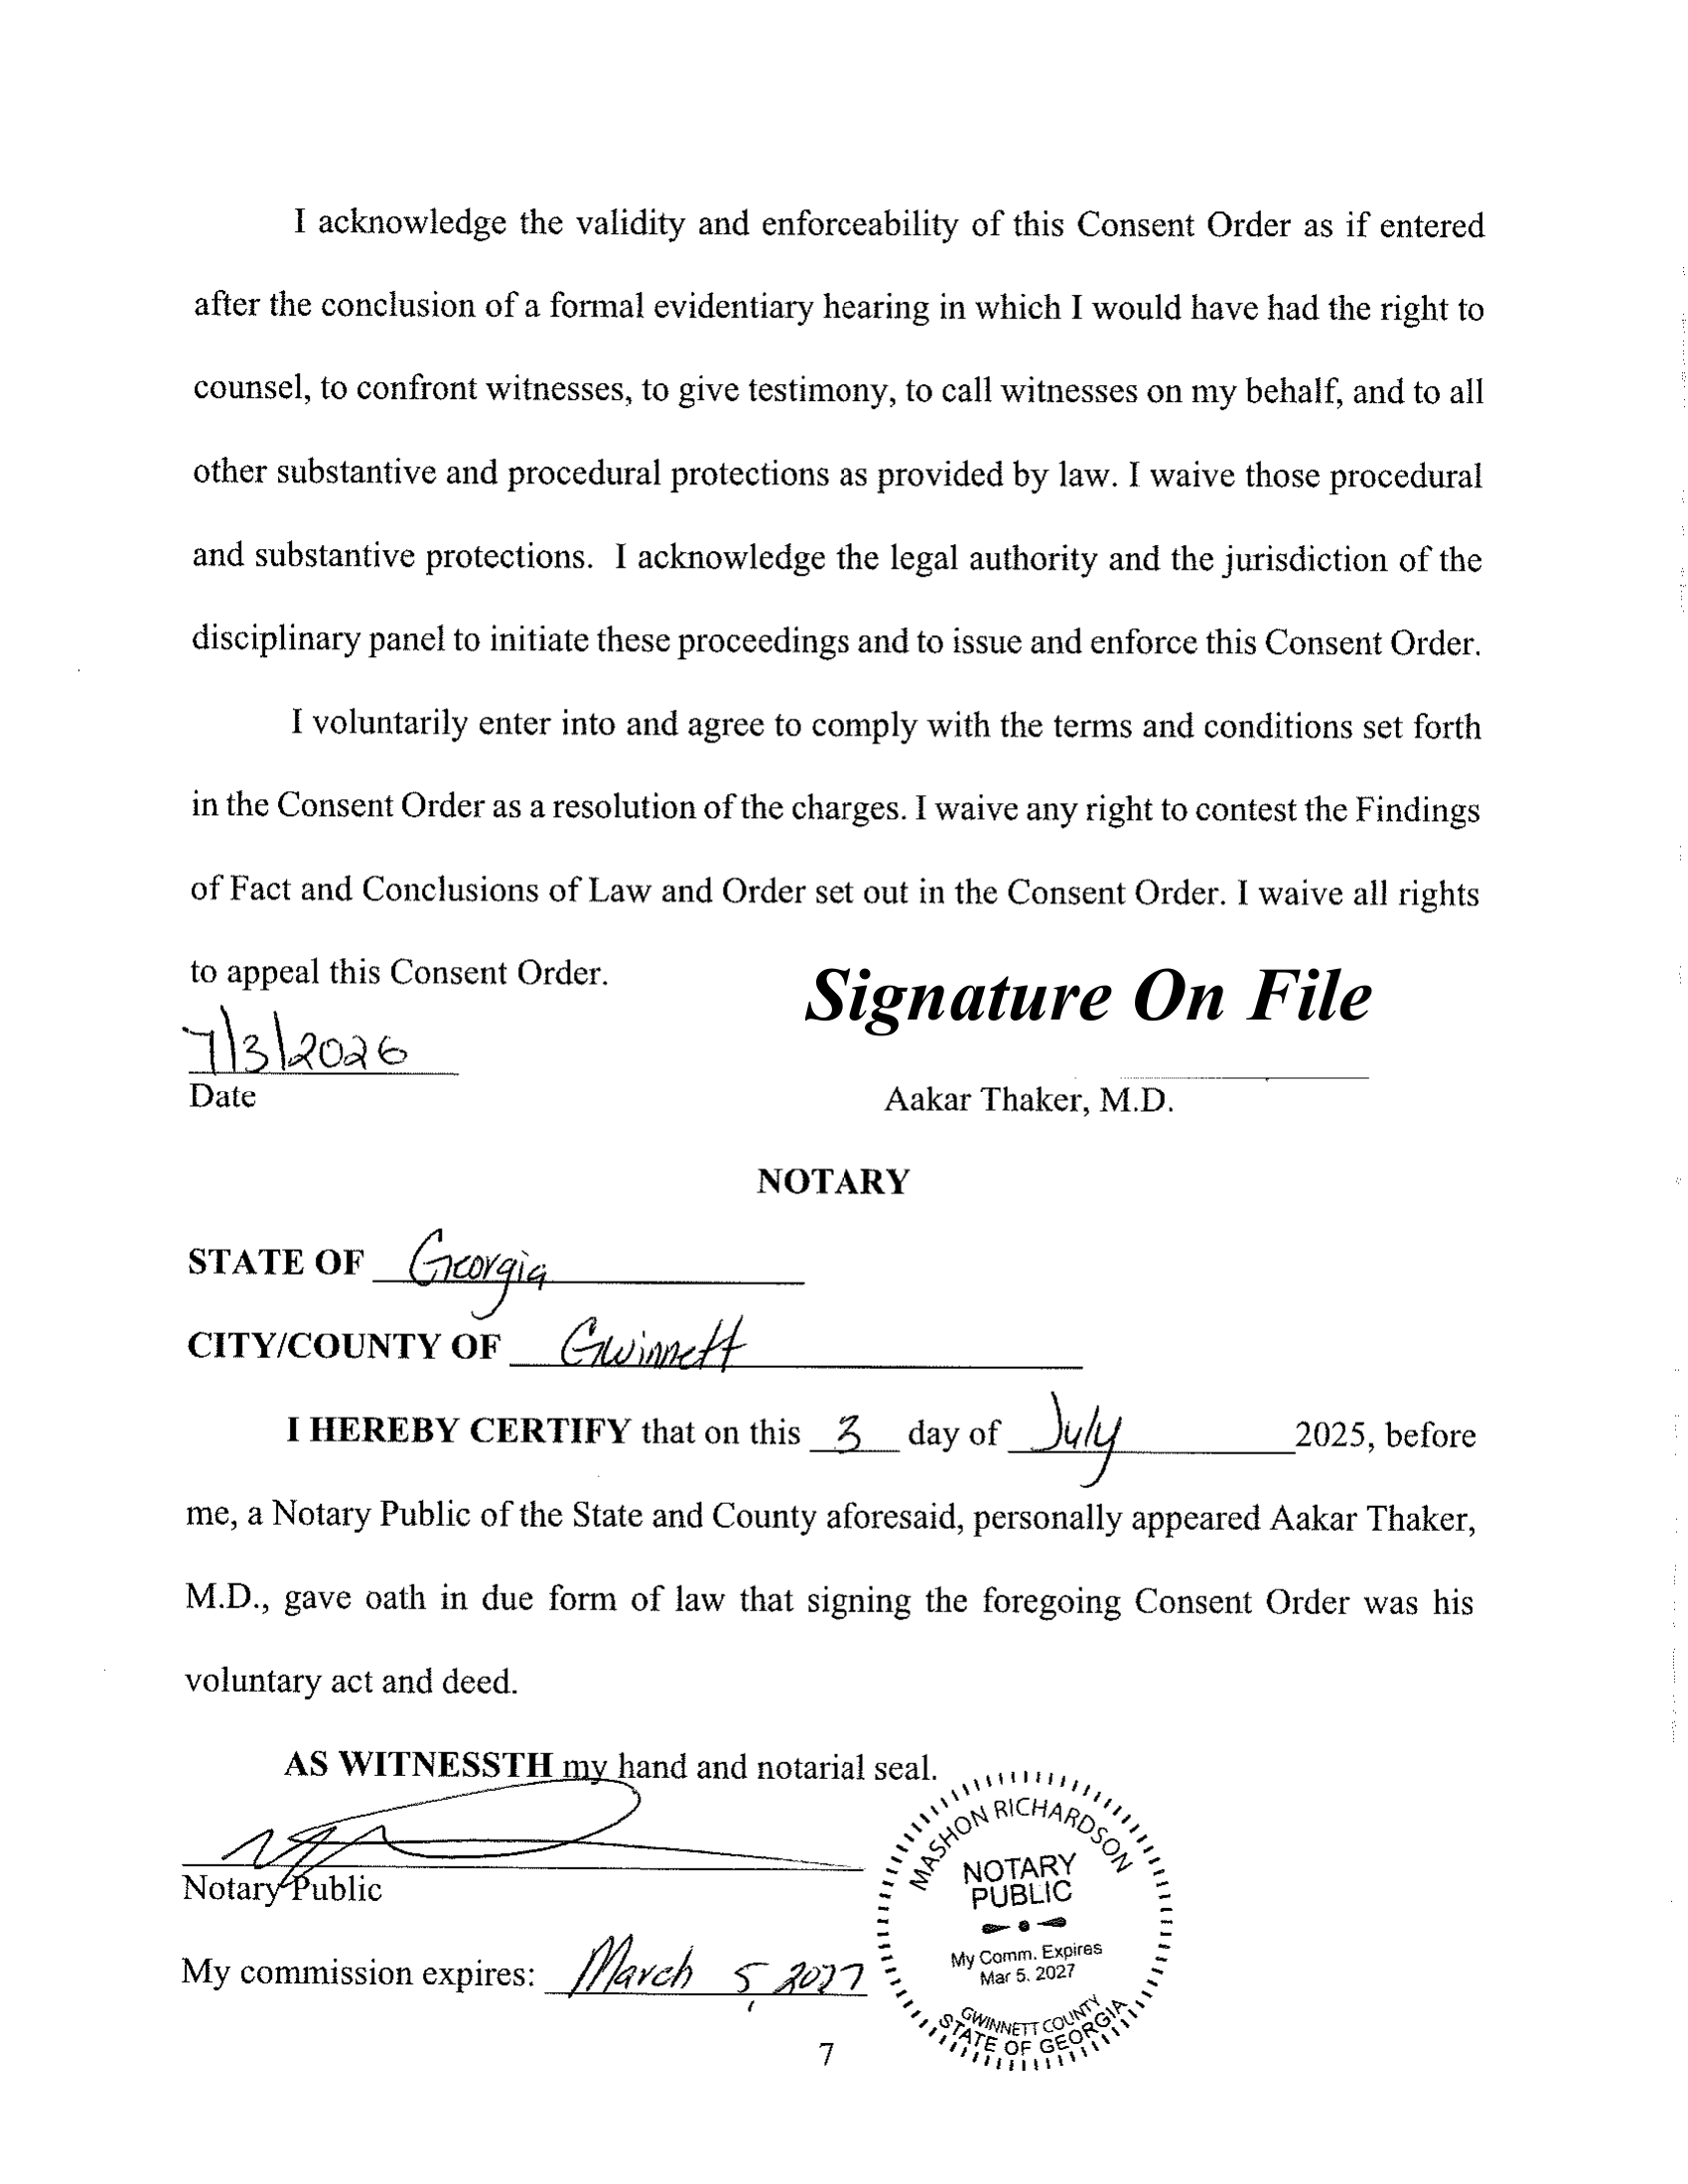 I acknowledge the validity and enforceability of this Consent Order as if entered
after the conclusion of a formal evidentiary hearing in which I would have had the right to
counsel, to confront witnesses, to give testimony, to call witnesses on my behalf, and to all
other substantive and procedural protections as provided by law. I waive those procedural
and substantive protections. I acknowledge the legal authority and the jurisdiction of the
disciplinary panel to initiate these proceedings and to issue and enforce this Consent Order.
I voluntarily enter into and agree to comply with the terms and conditions set forth
in the Consent Order as a resolution of the charges. I waive any right to contest the Findings
of Fact and Conclusions of Law and Order set out in the Consent Order. I waive all rights
to appeal this Consent Order.
Signature On File
7/3/2026
Date
Aakar Thaker, M.D.
NOTARY
STATE OF Georgia
CITY/COUNTY OF Gwinnett
I HEREBY CERTIFY that on this 3 day of July 2025, before
me, a Notary Public of the State and County aforesaid, personally appeared Aakar Thaker,
M.D., gave oath in due form of law that signing the foregoing Consent Order was his
voluntary act and deed.
AS WITNESSTH my hand and notarial seal.
Notary Public
My commission expires: March 5, 2027
MASHON RICHARDSON
NOTARY
PUBLIC
My Comm. Expires
Mar 5. 2027
GWINNETT COUNTY
STATE OF GEORGIA
7